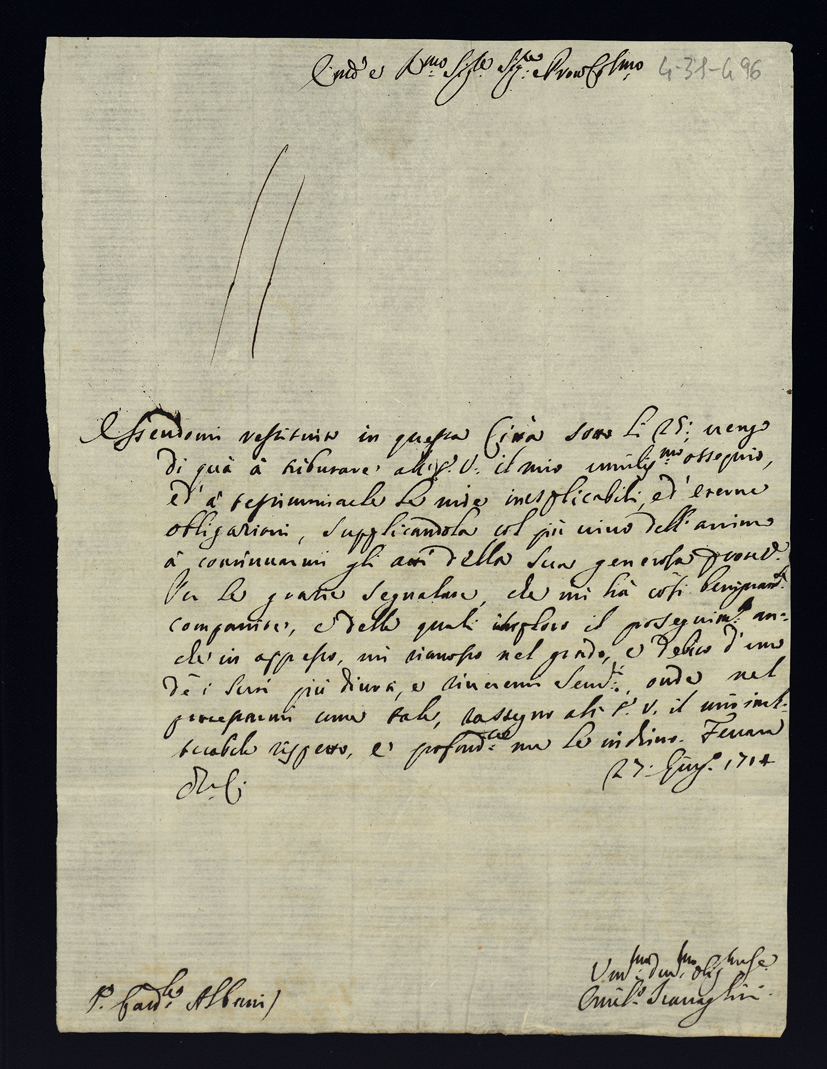 Em̃o e R.mo Sig.re Sig.re e Pron Col.mo 4-31-496
Essendomi restituito in questa Città sotto li 25; vengo
di quà à tributare all' E. V. il mio umiliss.mo ossequio,
ed' à testimoniarle le mie inesplicabili, ed' eterne
obligazioni, supplicandola col più vivo dell' animo
à continuarmi gli atti della sua generosa
Per le grazie segnalate, che mi hà così benignam.te
compartite, e delle quali imploro il proseguim.to an=
che in appresso, mi riconosco nel grado, e debito d'uno
de i suoi più divoti, e riverenti Serv.ri, onde nel
come tale, rassegno all' E. V. il mio inal=
terabile rispetto, e profond.te me le inchino. Ferrara
27: Giug.o 1714
S.r Card.le Albani
Um.mo Dev.mo Obl.mo